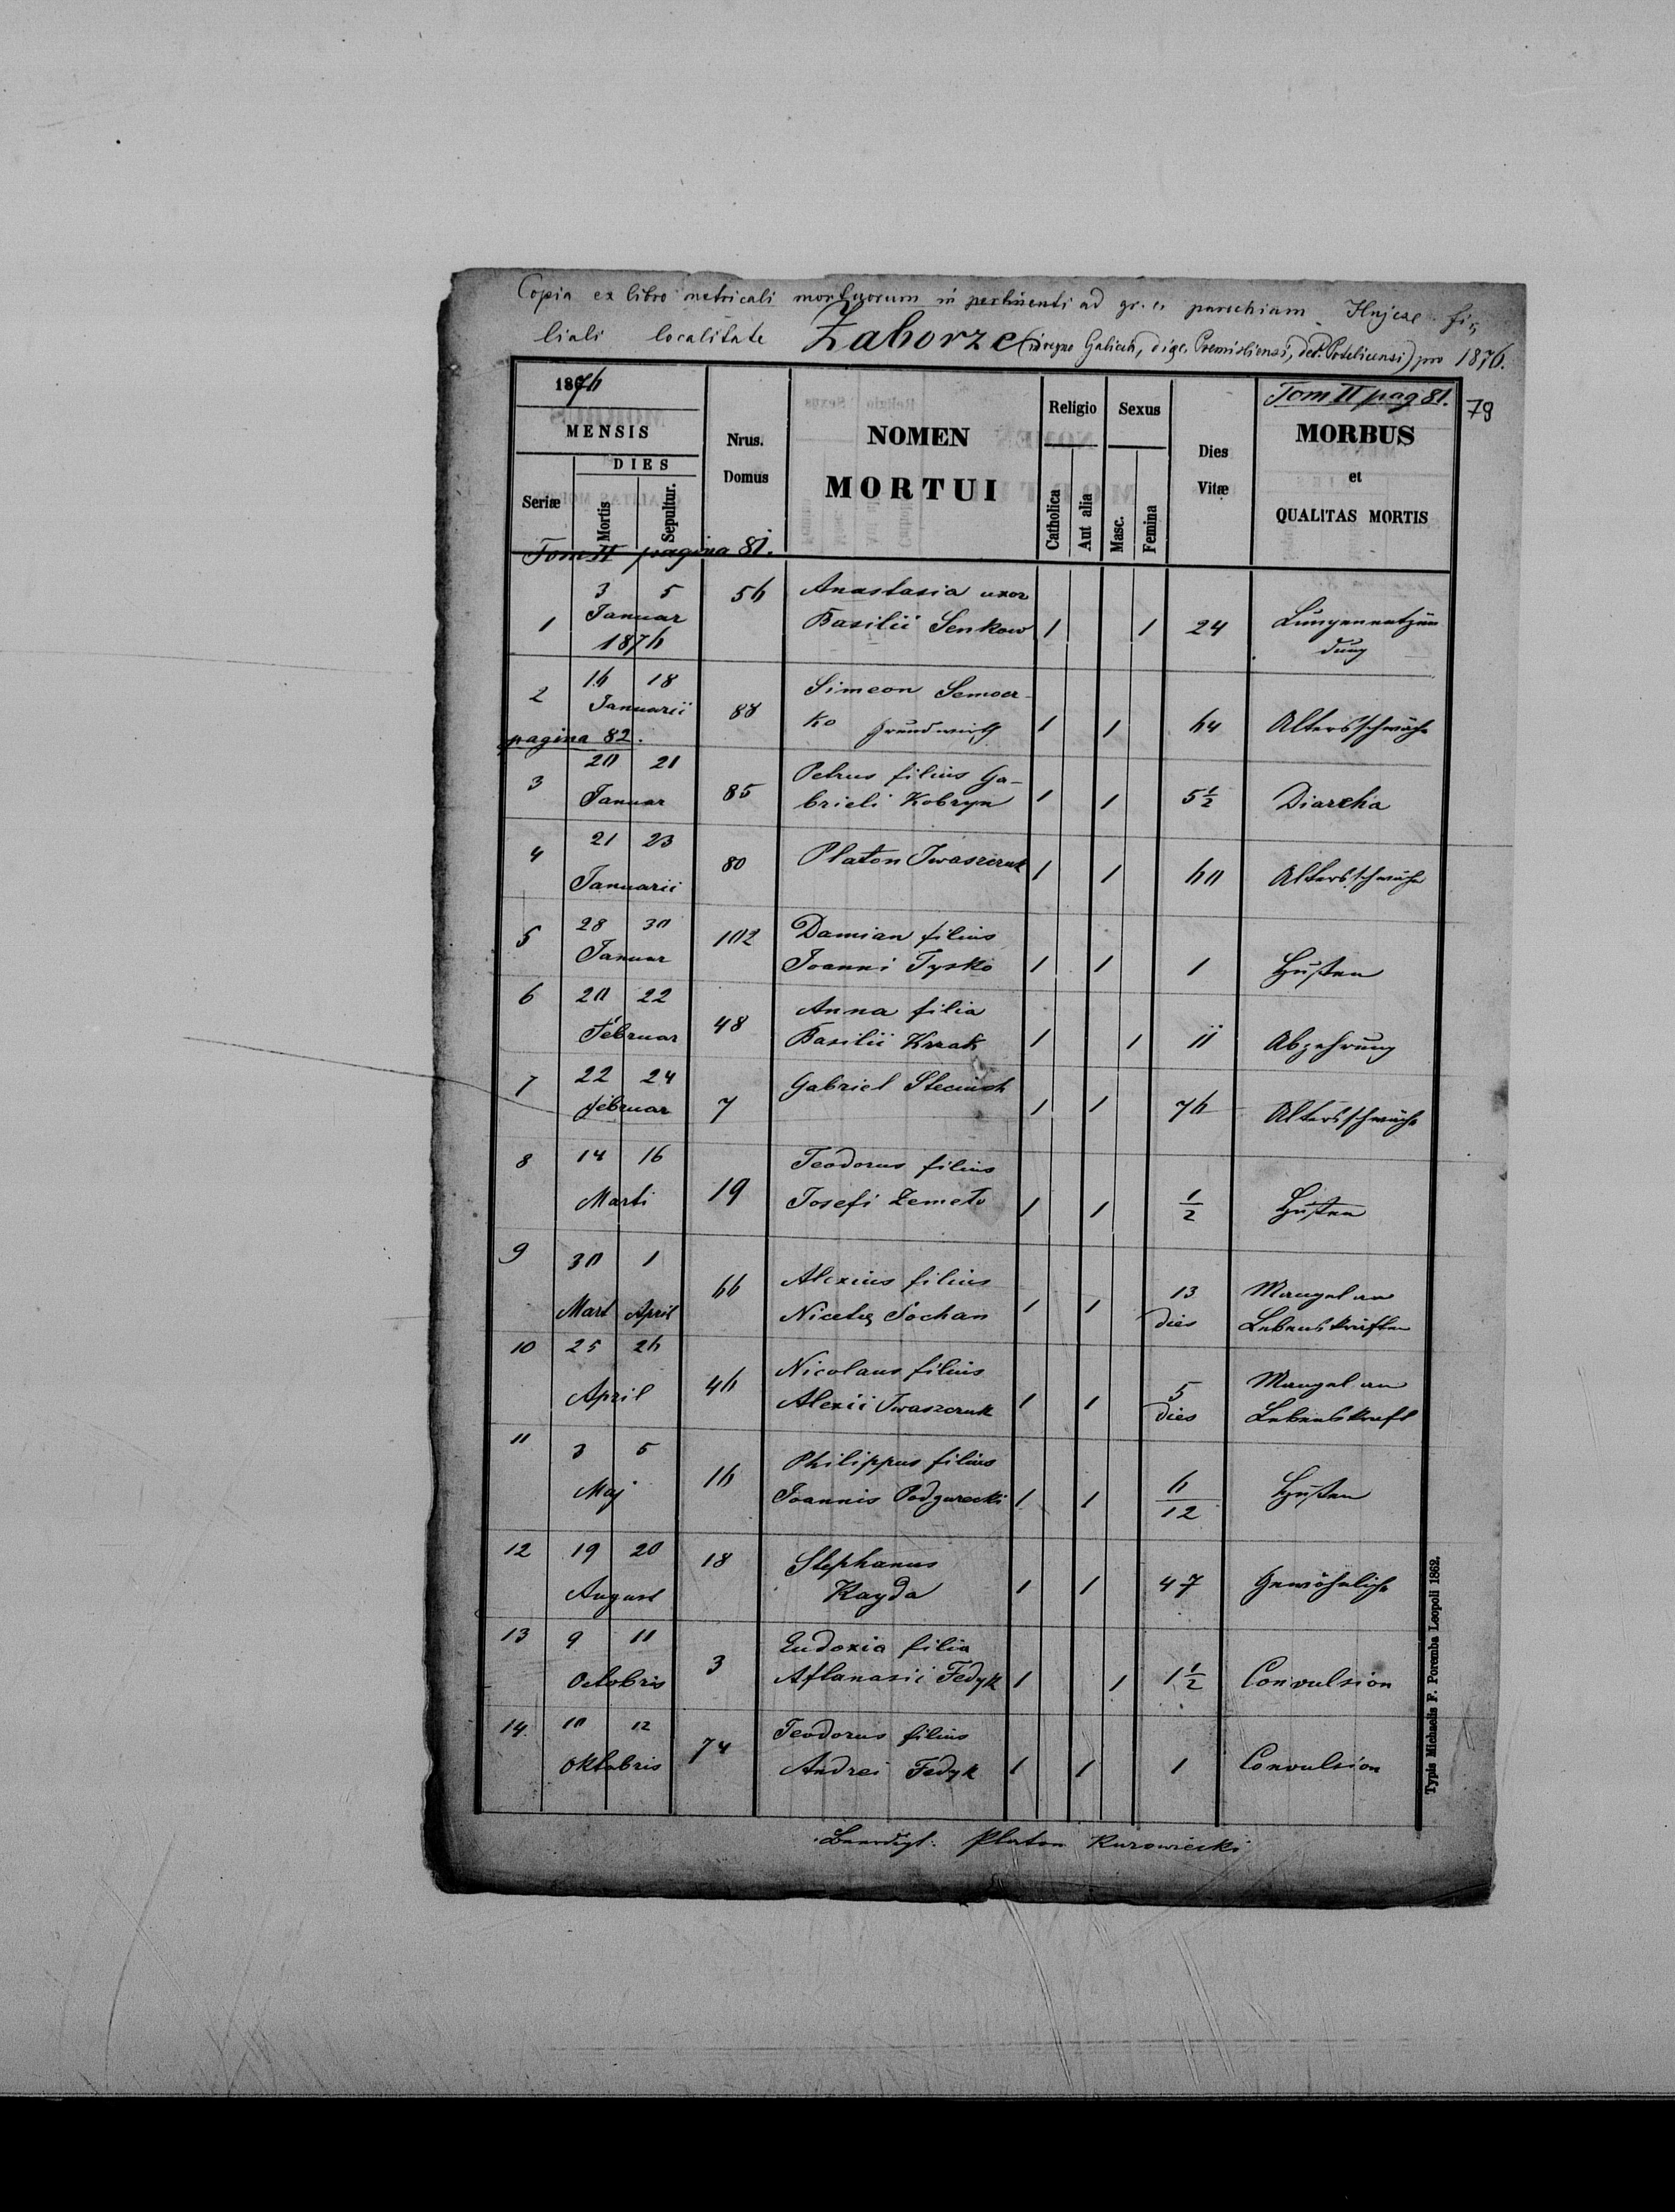 Copia ex libro metricali mortuorum in pertinenti ad gr. c. parochiam Hujcze fi-
liali localitate Zaborze (in regno Galicia, dioec. Premisliensi, dec. Potelicensi) pro 1876.
1876
Tom II pag 81.
79
MENSIS
Seriæ
DIES
Mortis
Sepultur.
Nrus.
Domus
NOMEN
MORTUI
Religio
Catholica
Aut alia
Sexus
Masc.
Femina
Dies
Vitæ
MORBUS
et
QUALITAS MORTIS
Tom II pagina 81.
1 3 5 Januar 1876 56 Anastasia uxor
Basilii Senkow 1 1 24 Lungenentzün
dung
2 16 18 Januarii 88 Simeon Semer-
ko Grundwirth 1 1 64 Altersschwäche
pagina 82.
3 20 21 Januar 85 Petrus filius Ga-
brieli Kobryn 1 1 5½ Diareha
4 21 23 Januarii 80 Platon Iwaszczuk 1 1 60 Altersschwäche
5 28 30 Januar 102 Damian filius
Joanni Tysko 1 1 1 Husten
6 20 22 Februar 48 Anna filia
Basilii Krzak 1 1 11 Abzehrung
7 22 24 Februar 7 Gabriel 1 1 76 Altersschwäche
8 14 16 Marti 19 Teodorus filius
Josefi Zemeto 1 1 1/2 Husten
9 30 1 Mart April 66 Alexius filius
Nicetę Sochan 1 1 13 dies Mangel an
Lebenskräften
10 25 26 April 46 Nicolaus filius
Alexii Iwaszczuk 1 1 5 dies Mangel an
Lebenskraft
11 3 5 Maj 16 Philippus filius
Joannis Podgurecki 1 1 6/12 Husten
12 19 20 August 18 Stephanus
Kayda 1 1 47 Gewöhnliche
13 9 11 Octobris 3 Eudoxia filia
Aftanasii Fedyk 1 1 1½ Convulsion
14 10 12 Oktobris 74 Teodorus filius
Andrei Fedyk 1 1 1 Convulsion
Beerdigt: Platon Kurowiecki
Typis Michaelis F. Poremba Leopoli 1862.